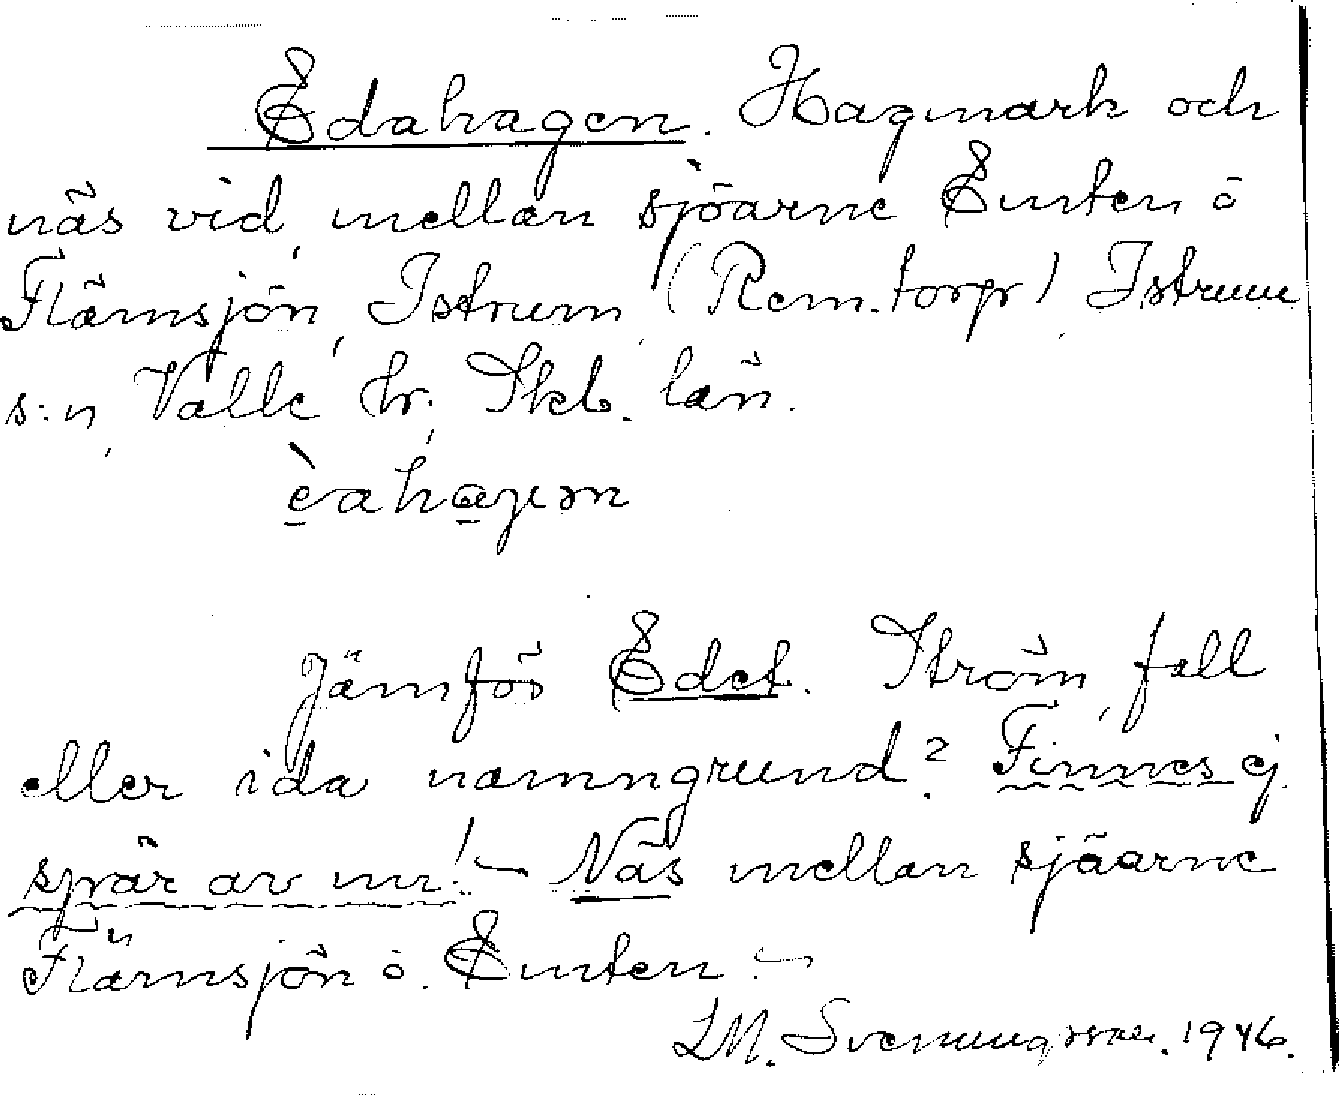 Edahagen. Hagmark och
näs vid, mellan sjöarne Emten ö
Flämsjön, Istrum (Rem.torp), Istrum
s:n, Valle hr, Skb. län.
èahagen
Jämför Edet. Ström, fall
eller ida namngrund? Finnes ej
spår av nu! – Näs mellan sjöarne
Flämsjön o. Emten –
LM. Svenungsson. 1946.